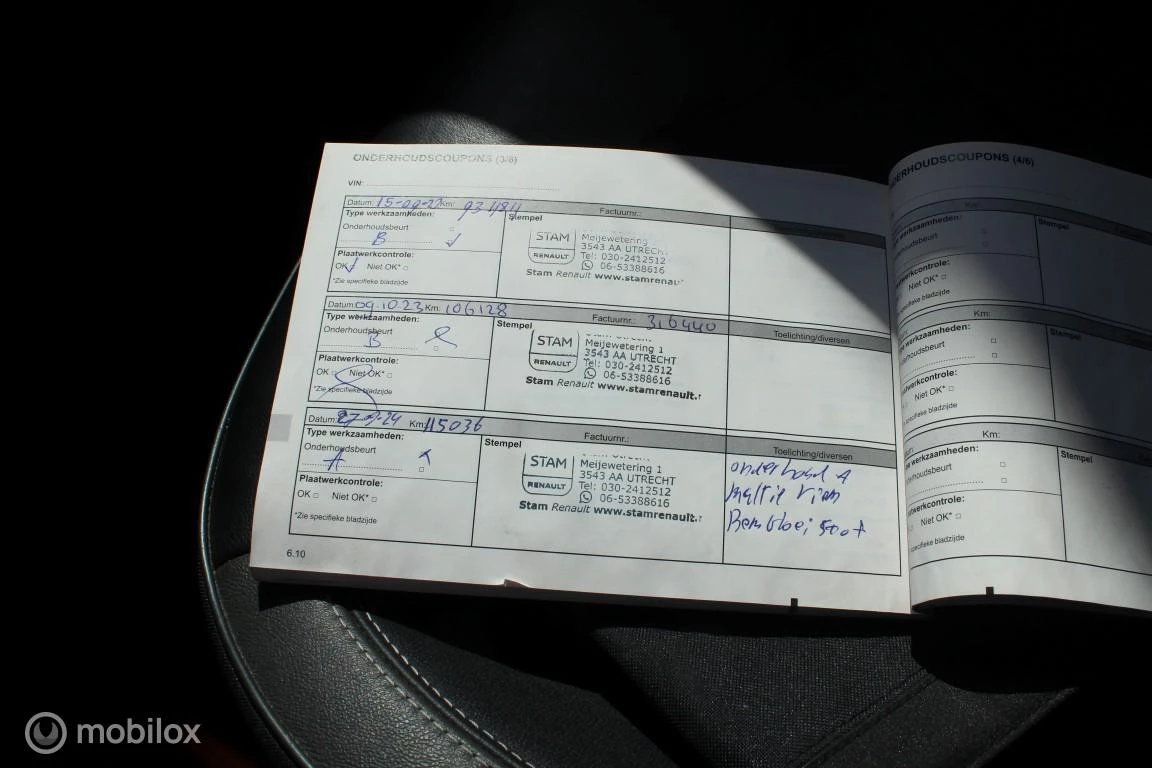 ONDERHOUDSCOUPONS (3/6)
VIN:
Datum: 15-09-22 Km:
Factuurnr.:
Type werkzaamheden:
Stempel
Onderhoudsbeurt
B
Plaatwerkcontrole:
OK Niet OK*
*Zie specifieke bladzijde
STAM
RENAULT
Meijewetering
3543 AA UTRECH
Tel: 030-2412512
06-53388616
Stam Renault www.stamrenau
Datum: 09.10.23 Km: 106128
Factuurnr.: 316440
Type werkzaamheden:
Stempel
Toelichting/diversen
Onderhoudsbeurt
B
Plaatwerkcontrole:
OK Niet OK*
*Zie specifieke bladzijde
STAM
RENAULT
Meijewetering 1
3543 AA UTRECHT
Tel: 030-2412512
06-53388616
Stam Renault www.stamrenault.
Datum: 27-9-24 Km: 115036
Factuurnr.:
Type werkzaamheden:
Stempel
Toelichting/diversen
Onderhoudsbeurt
A
Plaatwerkcontrole:
OK Niet OK*
*Zie specifieke bladzijde
STAM
RENAULT
Meijewetering 1
3543 AA UTRECHT
Tel: 030-2412512
06-53388616
Stam Renault www.stamrenault.
onderhoud A
6.10
NDERHOUDSCOUPONS (4/6)
Km:
werkzaamheden:
Stempel
houdsbeurt
werkcontrole:
Niet OK*
specifieke bladzijde
Km:
werkzaamheden:
Stempel
houdsbeurt
twerkcontrole:
Niet OK*
specifieke bladzijde
Km:
werkzaamheden:
Stempel
houdsbeurt
twerkcontrole:
Niet OK*
specifieke bladzijde
mobilox